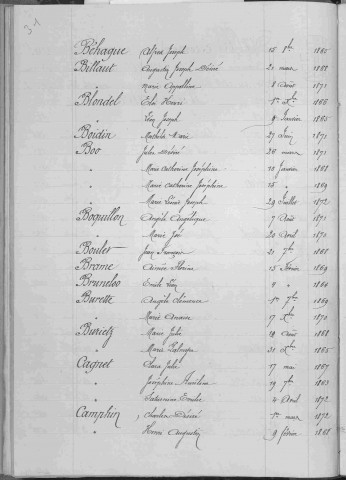 31
Béhague Alfred Joseph 15 1865
Billaut Augustin Joseph Désiré 21 mars 1868
" Marie Appolline 8 Août 1871
Blondel Elie Henri 1866
" Léon Joseph 4 Janvier 1865
Boidin Mathilde Marie 27 Juin 1871
Boo Jules Désiré 26 mars 1871
" Marie Catherine Joséphine 10 Janvier 1868
" Marie Catherine Joséphine 15 " 1869
" Marie Louis Joseph 29 Juillet 1872
Boquillon Angèle Angélique 7 Août 1871
" Marie 20 Avril 1870
Boulet Jean François 21 7bre 1868
Brame Aimée Florine 15 Février 1869
Bruneloo Emile Léon 9 " 1864
Burette Angèle Clémence 7bre 1869
" Marie 17 Xbre 1870
Buriez Marie Julie 19 Août 1868
" Marie 31 Xbre 1865
Cagnet Clara Julie 17 mai 1867
" Joséphine 29 7bre 1863
" Emilie 4 Avril 1872
Camphin Charles Désiré mars 1872
" Henri Augustin 9 février 1868